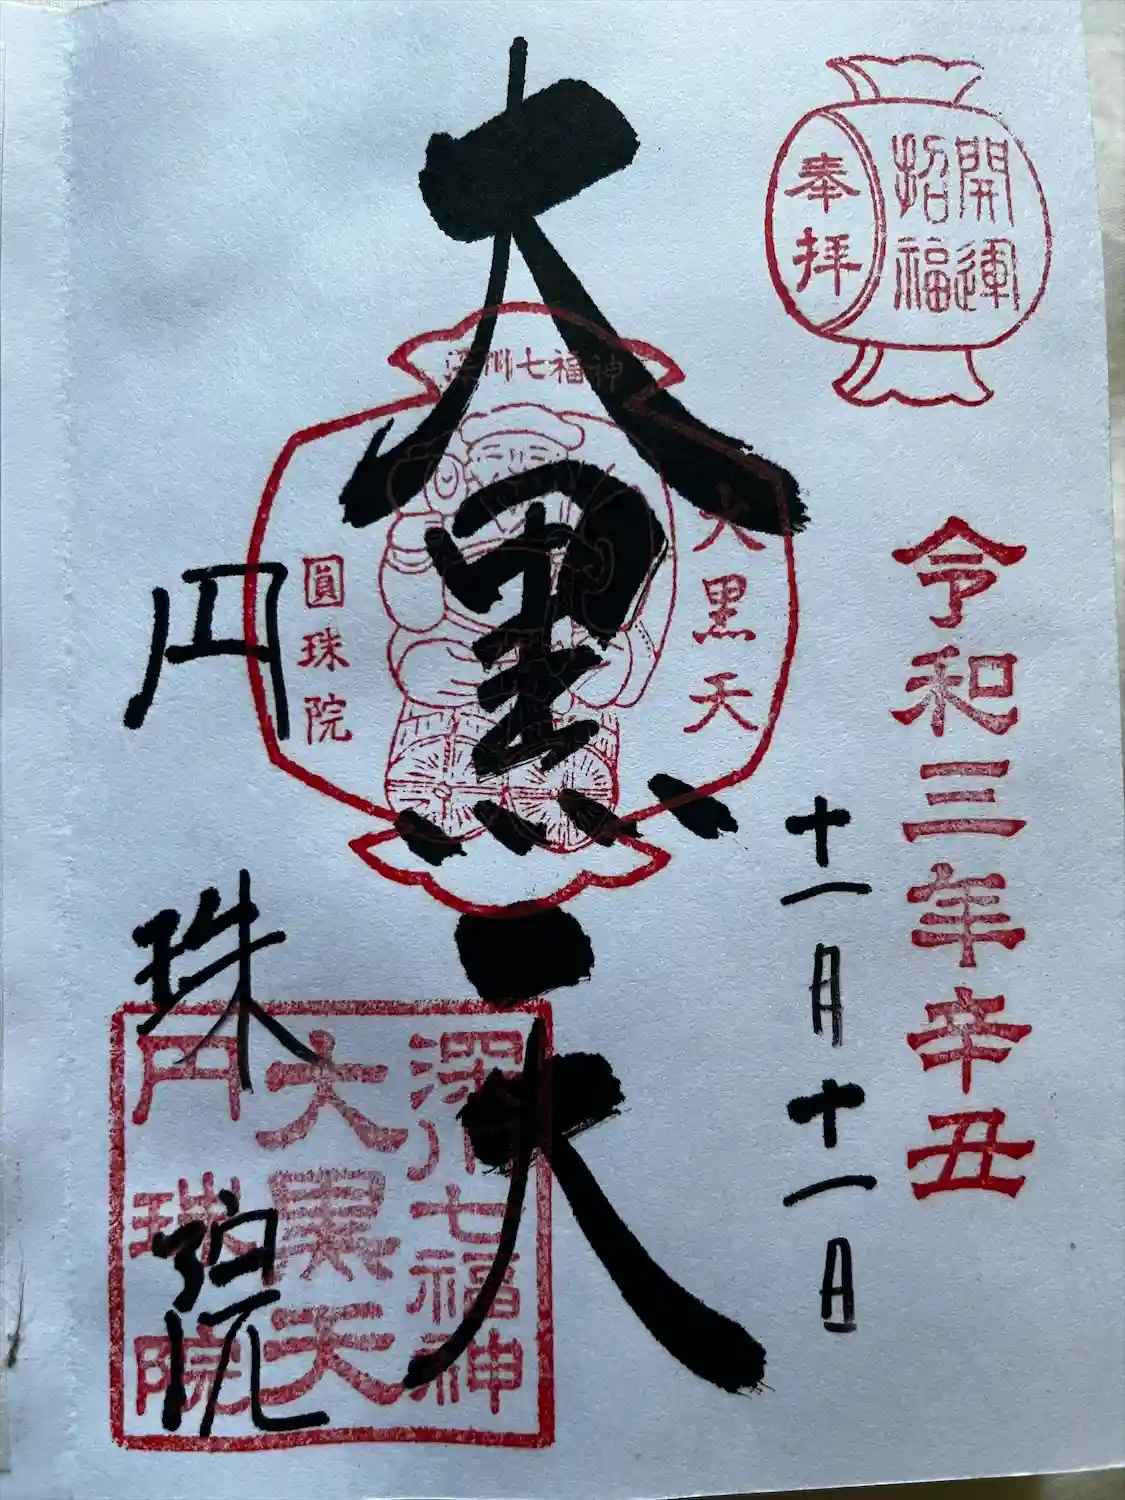 開運
招福
奉拝
令和三年辛丑
十一月十一日
深川七福神
大黒天
圓珠院
大黒天
深川七福神
大黒天
円珠院
円珠院